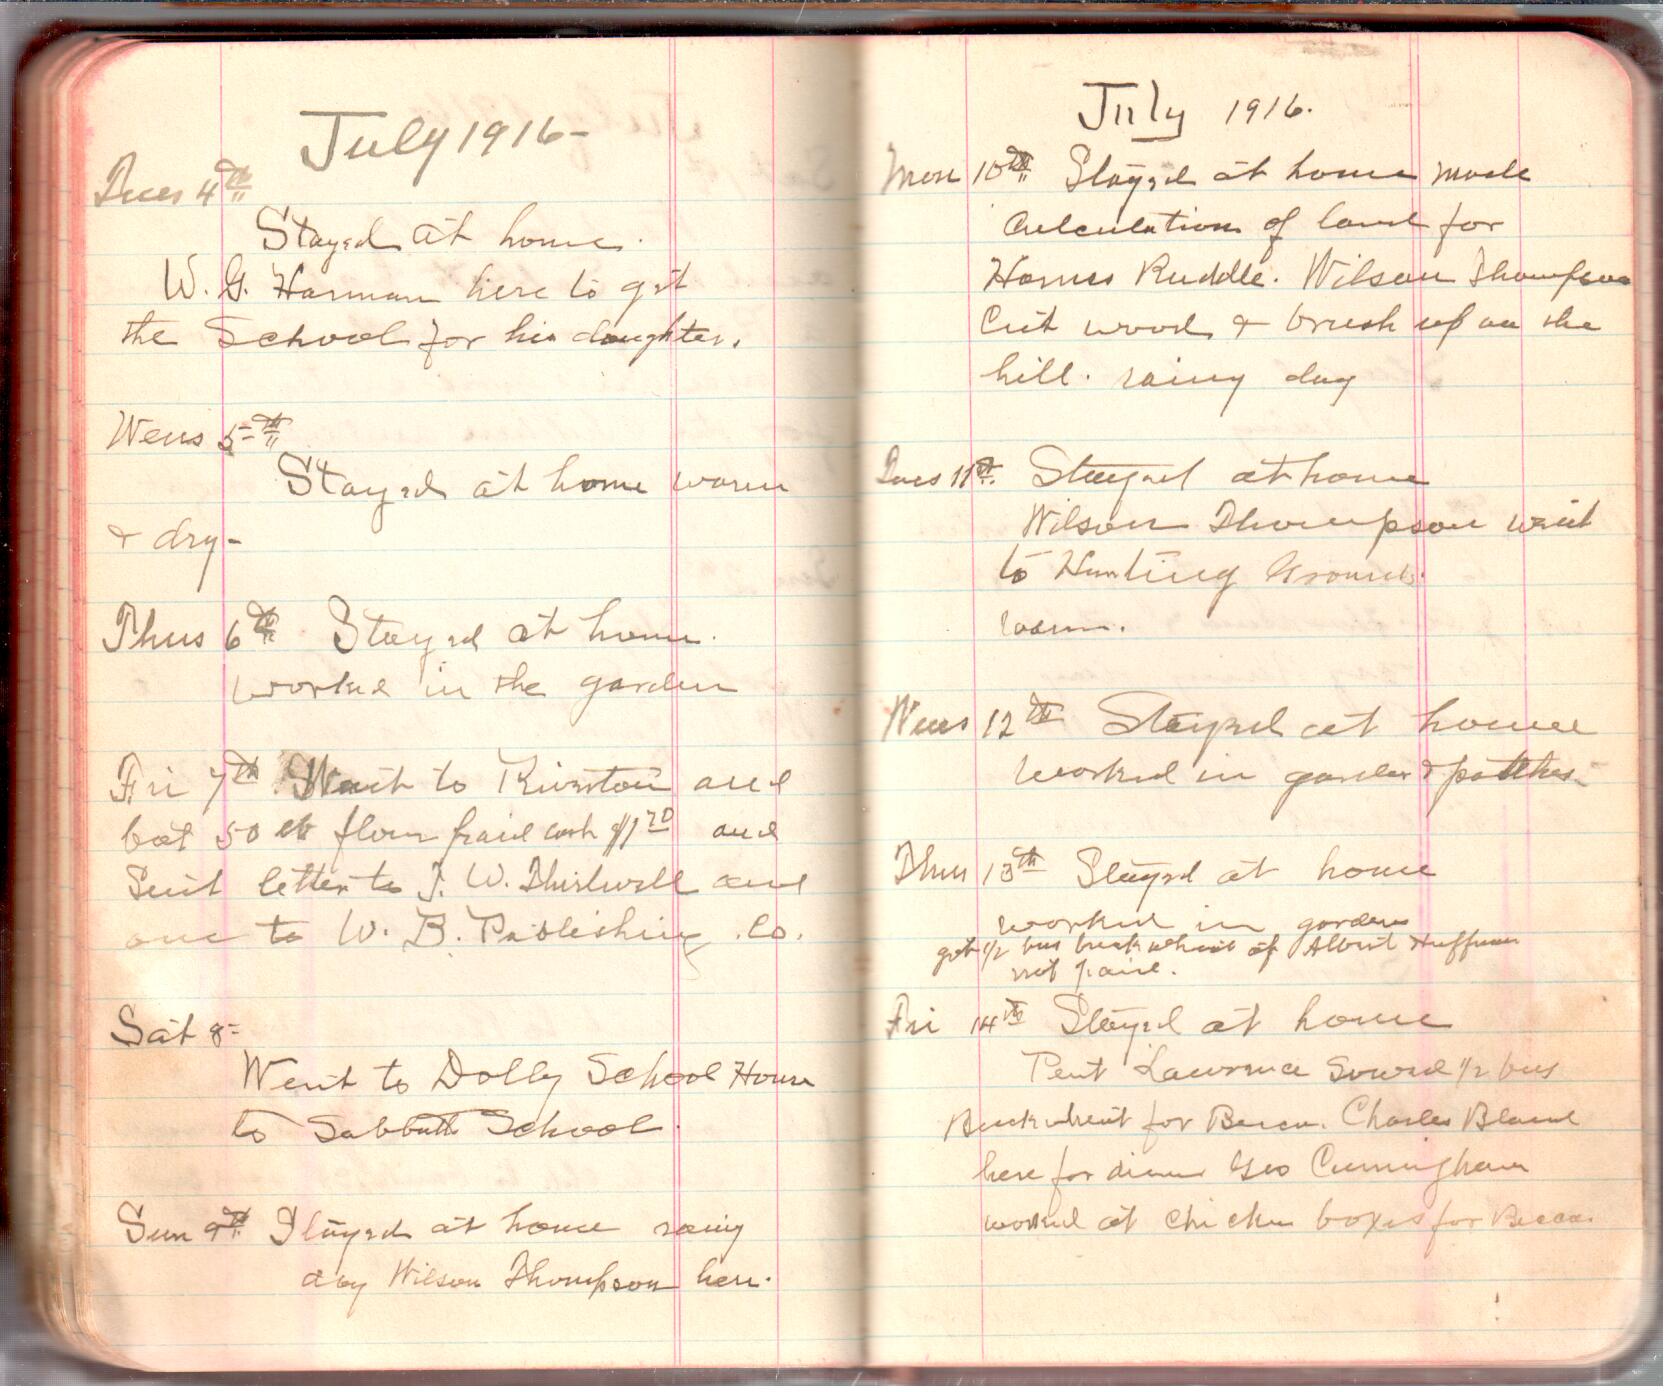 July 1916-
Tues 4th
Stayed at home.
W. G. Harman here to get
the School for his daughter.
Wens 5th
Stayed at home warm
& dry-
Thus 6th Stayed at home.
worked in the garden
Fri 7th Went to Riverton and
bot 50 lb flour paid cash $1 70 and
Sent letter to J. W. Thirlwell and
one to W. B. Publishing Co.
Sat 8-
Went to Dolly School House
to Sabbath School.
Sun 9th Stayed at home rainy
day Wilson Thompson here.
July 1916.
Mon 10th Stayed at home made
calculation of land for
Homes Ruddle. Wilson Thompson
Cut wood & brush up on the
hill. rainy day
Tues 11th. Stayed at home
Wilson Thompson went
to Hunting Ground.
warm.
Wens 12th Stayed at home
worked in garden & patches-
Thus 13th Stayed at home
worked in garden
got 1/2 bus buckwheat of Albert Huffman
not paid.
Fri 14th Stayed at home
Lawrence 1/2 bus
Buckwheat for Charles Bland
here for dinner Geo Cuningham
worked at chicken boxes for